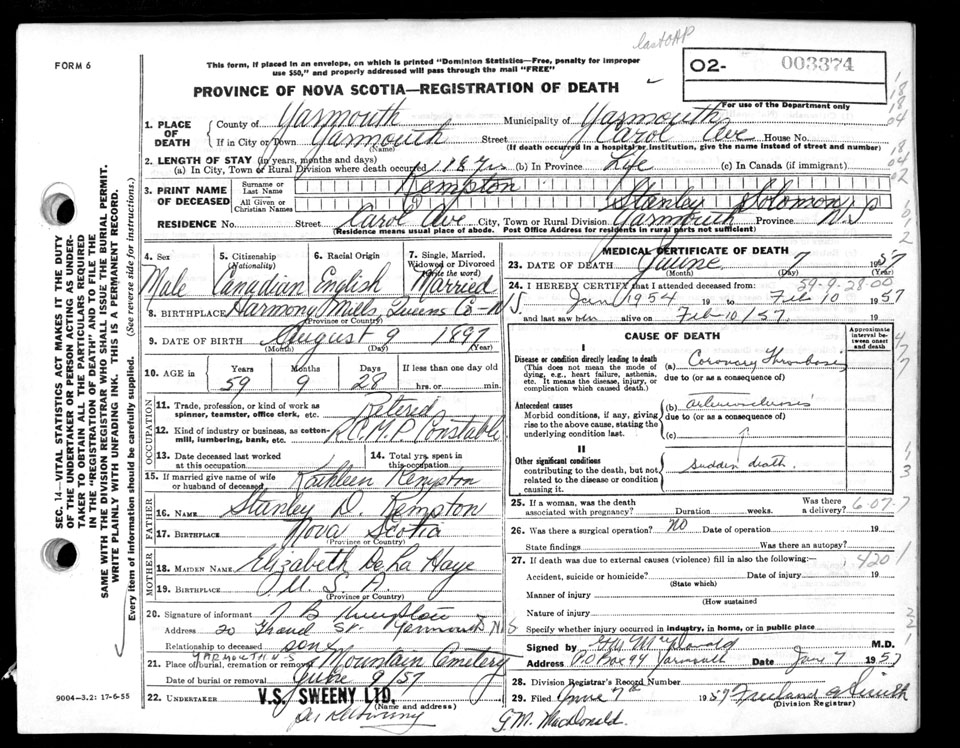 last OAP
FORM 6
This form, if placed in an envelope, on which is printed "Dominion Statistics—Free, penalty for improper
use $50," and properly addressed will pass through the mail "FREE"
O2- 003374
For use of the Department only
PROVINCE OF NOVA SCOTIA—REGISTRATION OF DEATH
1. PLACE OF DEATH County of Yarmouth Municipality of Yarmouth
If in City or Town Yarmouth (Name) Street Carol Ave House No.
(If death occurred in a hospital or institution, give the name instead of street and number)
2. LENGTH OF STAY (in years, months and days)
(a) In City, Town or Rural Division where death occurred 18 Yrs (b) In Province Life (c) In Canada (if immigrant)
3. PRINT NAME OF DECEASED Surname or Last Name Kempton
All Given or Christian Names Stanley Solomon
RESIDENCE No. Street Carol Ave. City, Town or Rural Division Yarmouth Province N.S
(Residence means usual place of abode. Post Office Address for residents in rural parts not sufficient)
4. Sex Male
5. Citizenship (Nationality) Canadian
6. Racial Origin English
7. Single, Married, Widowed or Divorced (Write the word) Married
8. BIRTHPLACE Harmony Mills, Queens Co-N
(Province or Country)
9. DATE OF BIRTH August 9 1897
(Month) (Day) (Year)
10. AGE in Years 59 Months 9 Days 28 If less than one day old hrs. or min.
OCCUPATION
11. Trade, profession, or kind of work as spinner, teamster, office clerk, etc. Retired
12. Kind of industry or business, as cotton-mill, lumbering, bank, etc. R.C.M.P. Constable
13. Date deceased last worked at this occupation
14. Total yrs. spent in this occupation
15. If married give name of wife or husband of deceased Kathleen Kempton
FATHER
16. NAME Stanley D. Kempton
17. BIRTHPLACE Nova Scotia
(Province or Country)
MOTHER
18. MAIDEN NAME Elizabeth DeLa Haye
19. BIRTHPLACE U.S.A.
(Province or Country)
20. Signature of informant B Kempton
Address 20 St. Yarmouth N.S
Relationship to deceased son
YARMOUTH N.S
21. Place of burial, cremation or removal Mountain Cemetery
Date of burial or removal June 9/57
22. UNDERTAKER V.S. SWEENY LTD.
(Name and address)
9004—3.2: 17-6-55
MEDICAL CERTIFICATE OF DEATH
23. DATE OF DEATH June 7 1957
(Day) (Year)
59-9-28-00
24. I HEREBY CERTIFY that I attended deceased from:
Jan 1954 19 to Feb 10 1957
and last saw him alive on Feb 10 / 57.
CAUSE OF DEATH
Approximate interval between onset and death
I
Disease or condition directly leading to death
(This does not mean the mode of dying, e.g., heart failure, asthenia, etc. It means the disease, injury, or complication which caused death.)
(a) Coronary Thrombosis
due to (or as a consequence of)
Antecedent causes
Morbid conditions, if any, giving rise to the above cause, stating the underlying condition last.
(b) arteriosclerosis
due to (or as a consequence of)
(c)
II
Other significant conditions
contributing to the death, but not related to the disease or condition causing it.
Sudden death.
25. If a woman, was the death associated with pregnancy? Duration weeks. Was there a delivery?
6-07-7
26. Was there a surgical operation? NO Date of operation 19
State findings Was there an autopsy?
27. If death was due to external causes (violence) fill in also the following:
420 1
Accident, suicide or homicide? Date of injury 19
(State which)
Manner of injury
(How sustained
Nature of injury
Specify whether injury occurred in industry, in home, or in public place
Signed by GM McDonald M.D.
Address P.O Box 99 Yarmouth Date June 7 1957
28. Division Registrar's Record Number
29. Filed June 7th 1957 Freeland Smith
(Division Registrar)
G.M. MacDonald.
SEC. 14—VITAL STATISTICS ACT MAKES IT THE DUTY
OF THE UNDERTAKER OR PERSON ACTING AS UNDER-
TAKER TO OBTAIN ALL THE PARTICULARS REQUIRED
IN THE "REGISTRATION OF DEATH" AND TO FILE THE
SAME WITH THE DIVISION REGISTRAR WHO SHALL ISSUE THE BURIAL PERMIT.
WRITE PLAINLY WITH UNFADING INK. THIS IS A PERMANENT RECORD.
Every item of information should be carefully supplied. (See reverse side for instructions.)